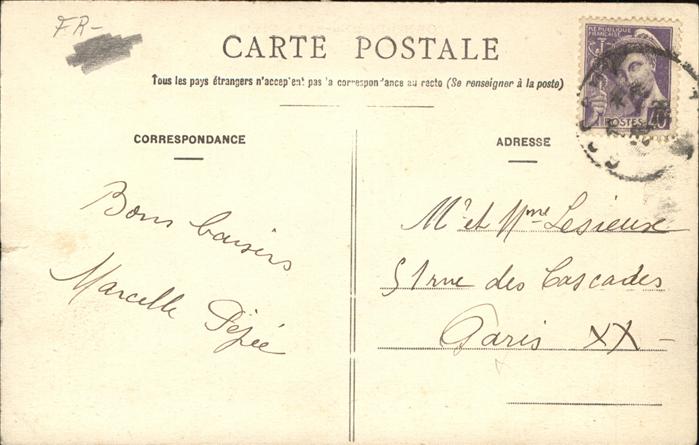 FR-
CARTE POSTALE
Tous les pays étrangers n'acceptent pas la correspondance au recto (Se renseigner à la poste)
RÉPUBLIQUE
FRANÇAISE
POSTES 40
CORRESPONDANCE
ADRESSE
Bons baisers
Marcelle
Mr et Mme Lesieux
51 rue des Cascades
Paris XX-